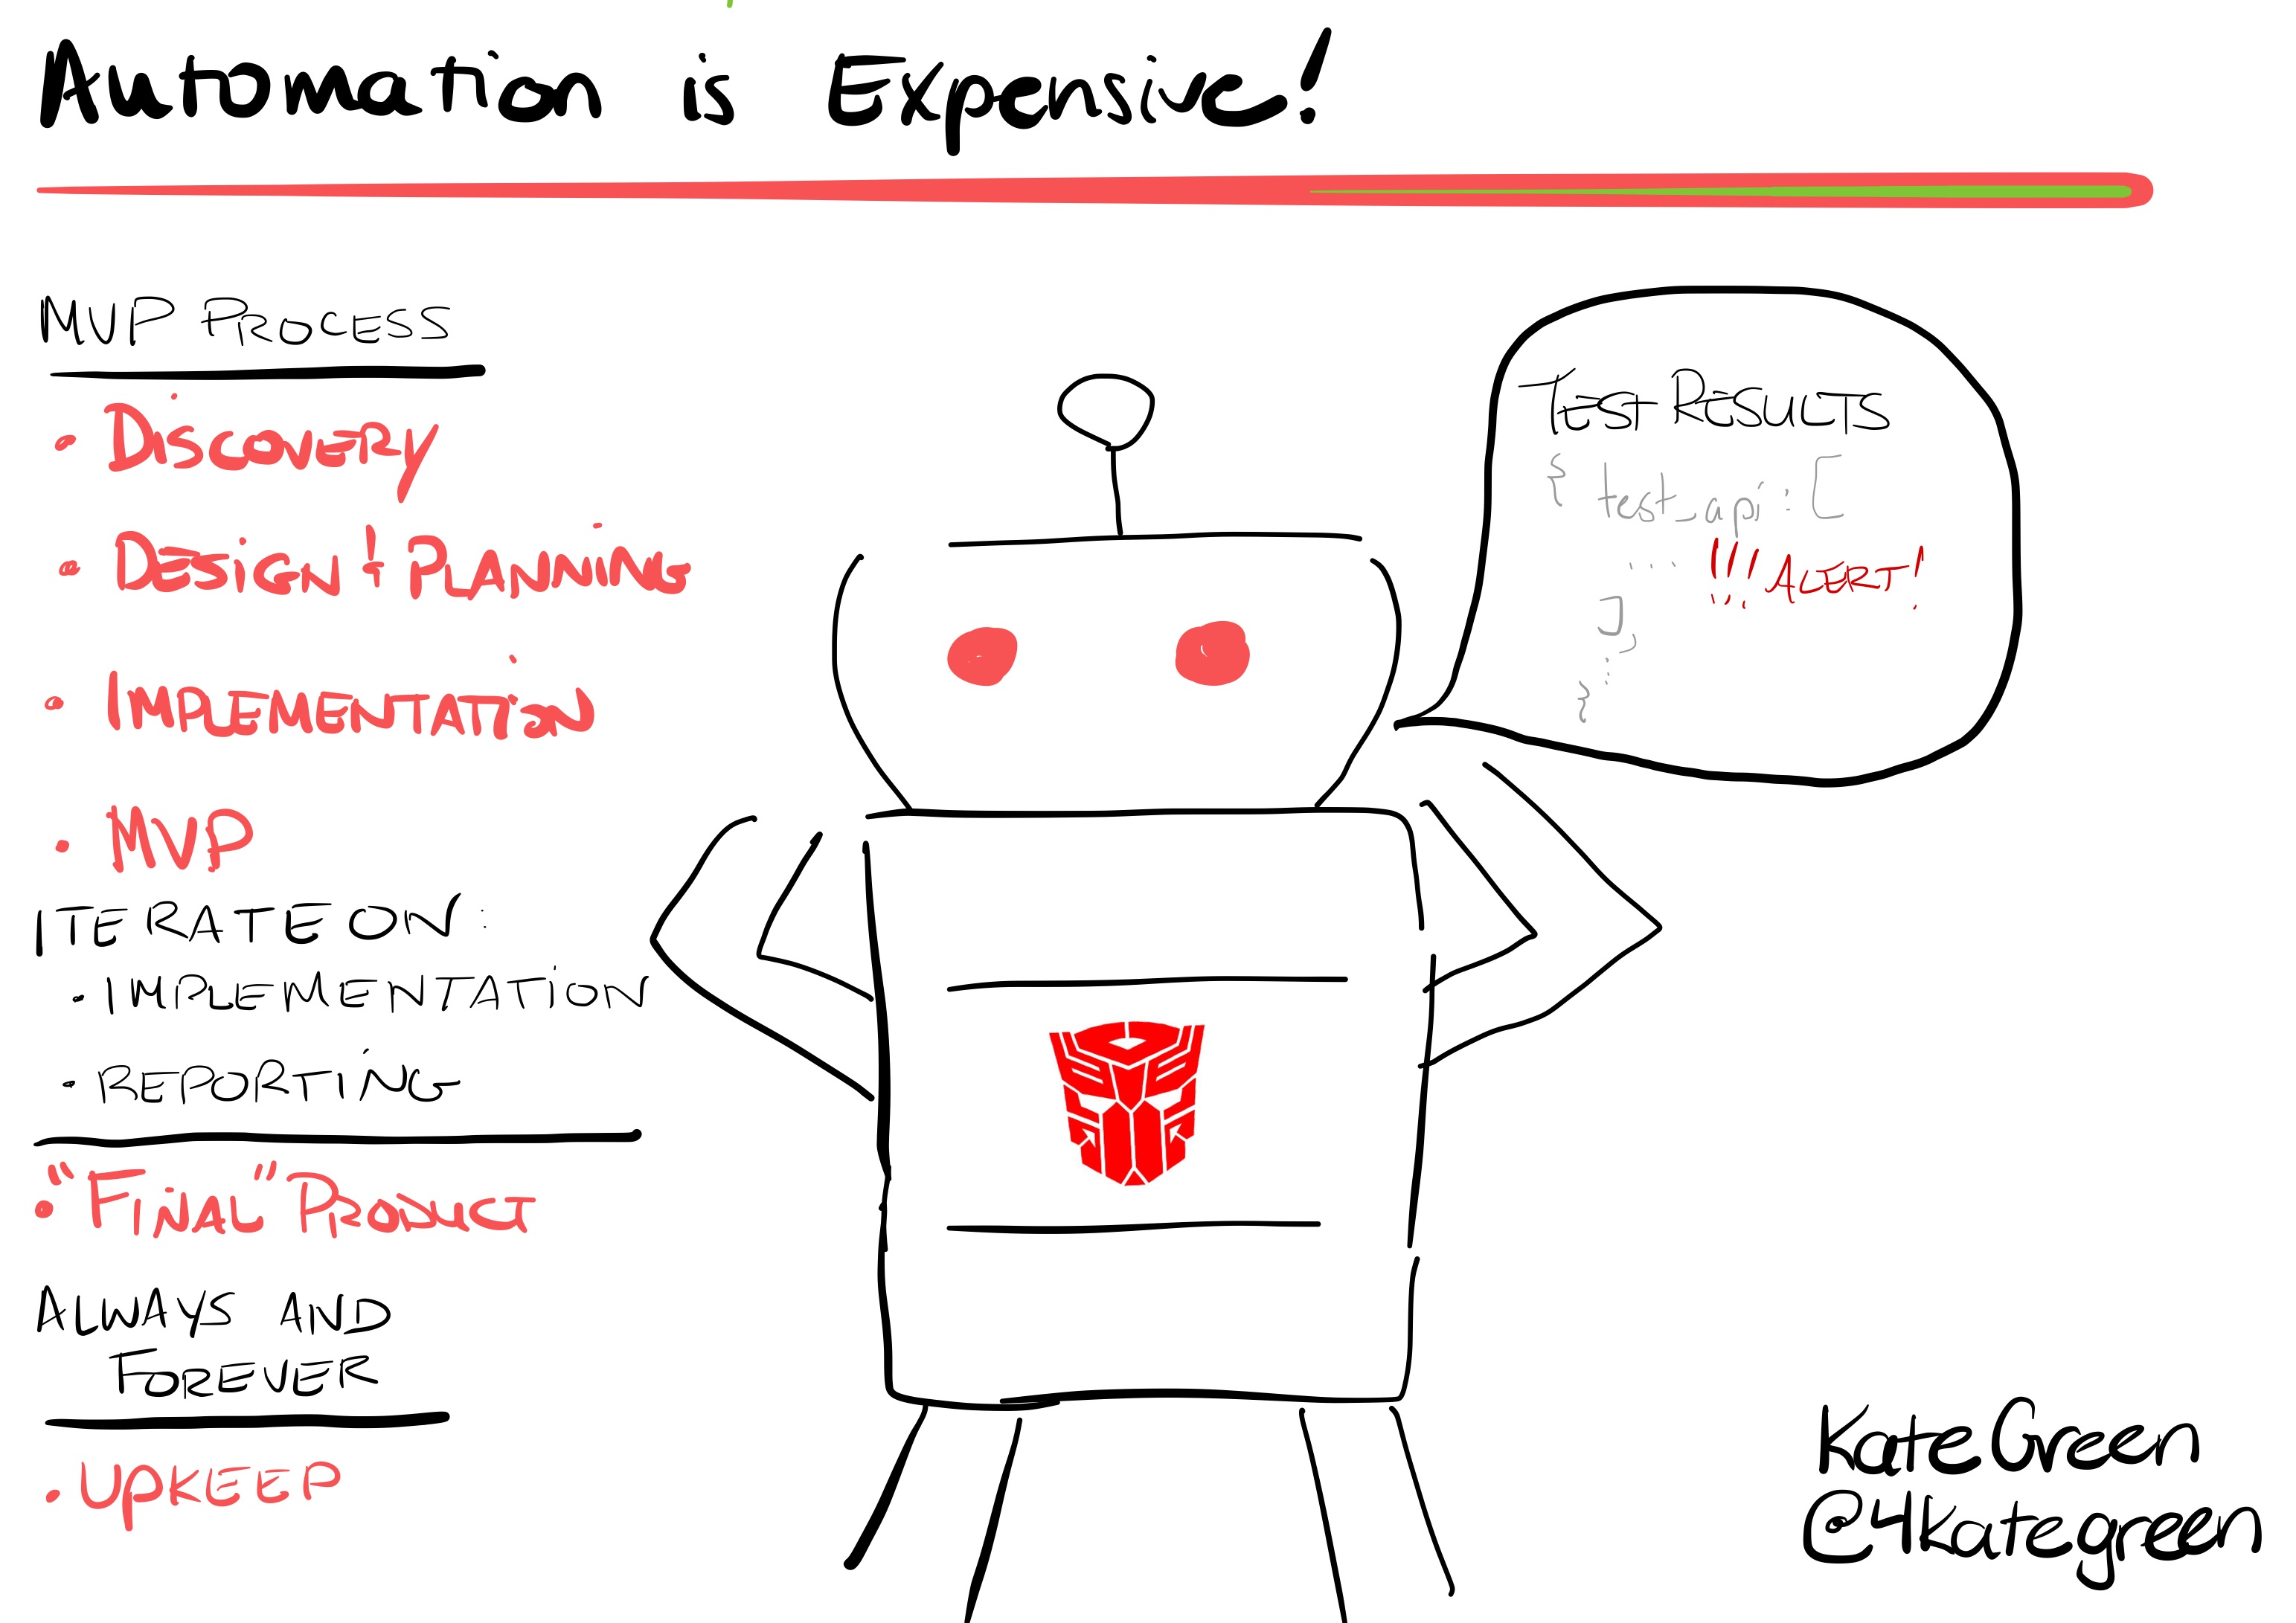 Automation is Expensive!
MVP PROCESS
• Discovery
• Design & Planning
• Implementation
• MVP
ITERATE ON:
• IMPLEMENTATION
• REPORTING
• "Final" Product
ALWAYS AND
FOREVER
• UPKEEP
Test Results
{ test_api: [
... !!! ALERT!
],
:
}
Kate Green
@4kategreen